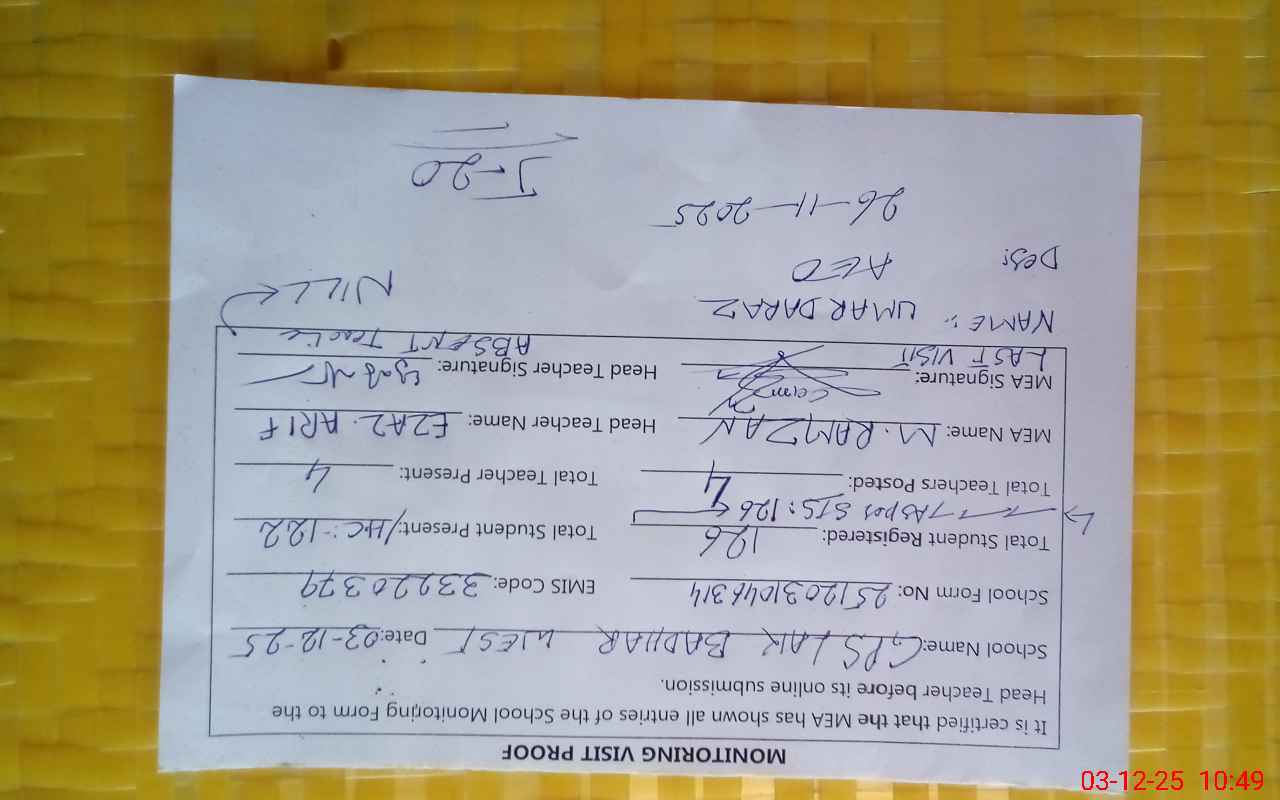 MONITORING VISIT PROOF
It is certified that the MEA has shown all entries of the School Monitoring Form to the
Head Teacher before its online submission.
School Name: GPS LAK BADHAR WEST Date: 03-12-25
School Form No: 2512031046314 EMIS Code: 33220379
Total Student Registered: 126 Total Student Present: /HC: 122
As per SIS: 126
Total Teachers Posted: 4 Total Teacher Present: 4
MEA Name: M. RAMZAN Head Teacher Name: EZAZ. ARIF
MEA Signature: Head Teacher Signature:
LAST VISIT ABSENT Teacher
NAME: UMAR DARAZ NILL
Des: AEO
26-11-2025
T-20
03-12-25 10:49